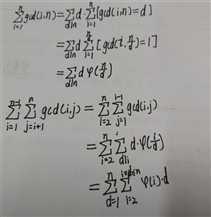 $\sum_{i=1}^{n} \gcd(i,n) = \sum_{d|n} d \cdot \sum_{i=1}^{n} [\gcd(i,n)=d]$
$= \sum_{d|n} d \sum_{t=1}^{\frac{n}{d}} [\gcd(t,\frac{n}{d})=1]$
$= \sum_{d|n} d \, \varphi(\frac{n}{d})$
$\sum_{i=1}^{n-1} \sum_{j=i+1}^{n} \gcd(i,j) = \sum_{i=2}^{n} \sum_{j=1}^{i-1} \gcd(i,j)$
$= \sum_{i=2}^{n} \sum_{d|i} d \cdot \varphi(\frac{i}{d})$
$= \sum_{d=1}^{n} \sum_{i=2} \varphi(i) \cdot d$